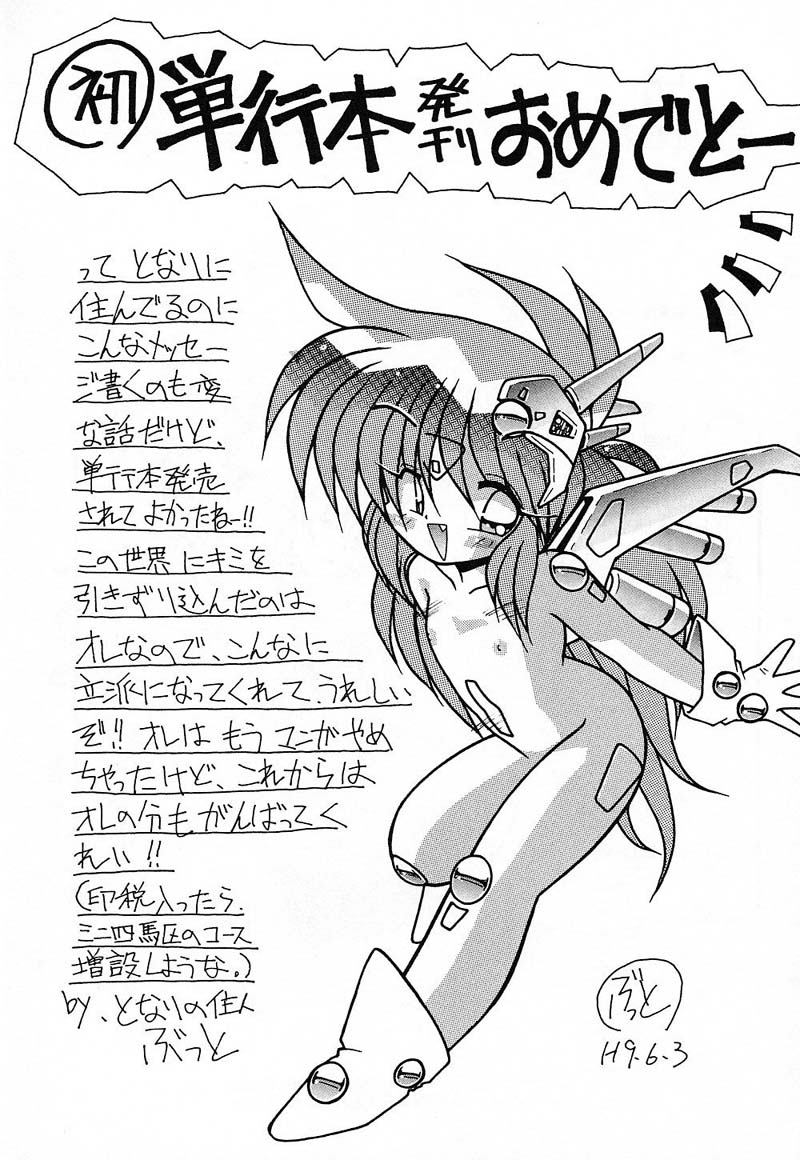 初単行本発刊おめでとー
って となりに
住んでるのに
こんなメッセー
ジ書くのも変
な話だけど、
単行本発売
されてよかったねー!!
この世界にキミを
引きずり込んだのは
オレなので、こんなに
立派になってくれて、うれしい
ぞ!! オレは もう マンガやめ
ちゃったけど、これからは
オレの分も がんばってく
れい!!
(印税入ったら、
ミニ四駆のコース
増設しような。)
by、となりの住人
ぶっと
ぶっと
H9.6.3